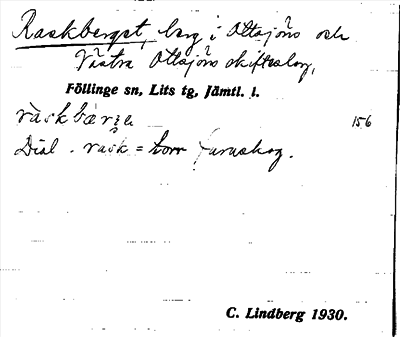 Raskberget, berg i Ottsjöns och
Västra Ottsjöns skifteslag,
Föllinge sn, Lits tg, Jämtl. l.
156
Dial. rask = torr furuskog.
C. Lindberg 1930.